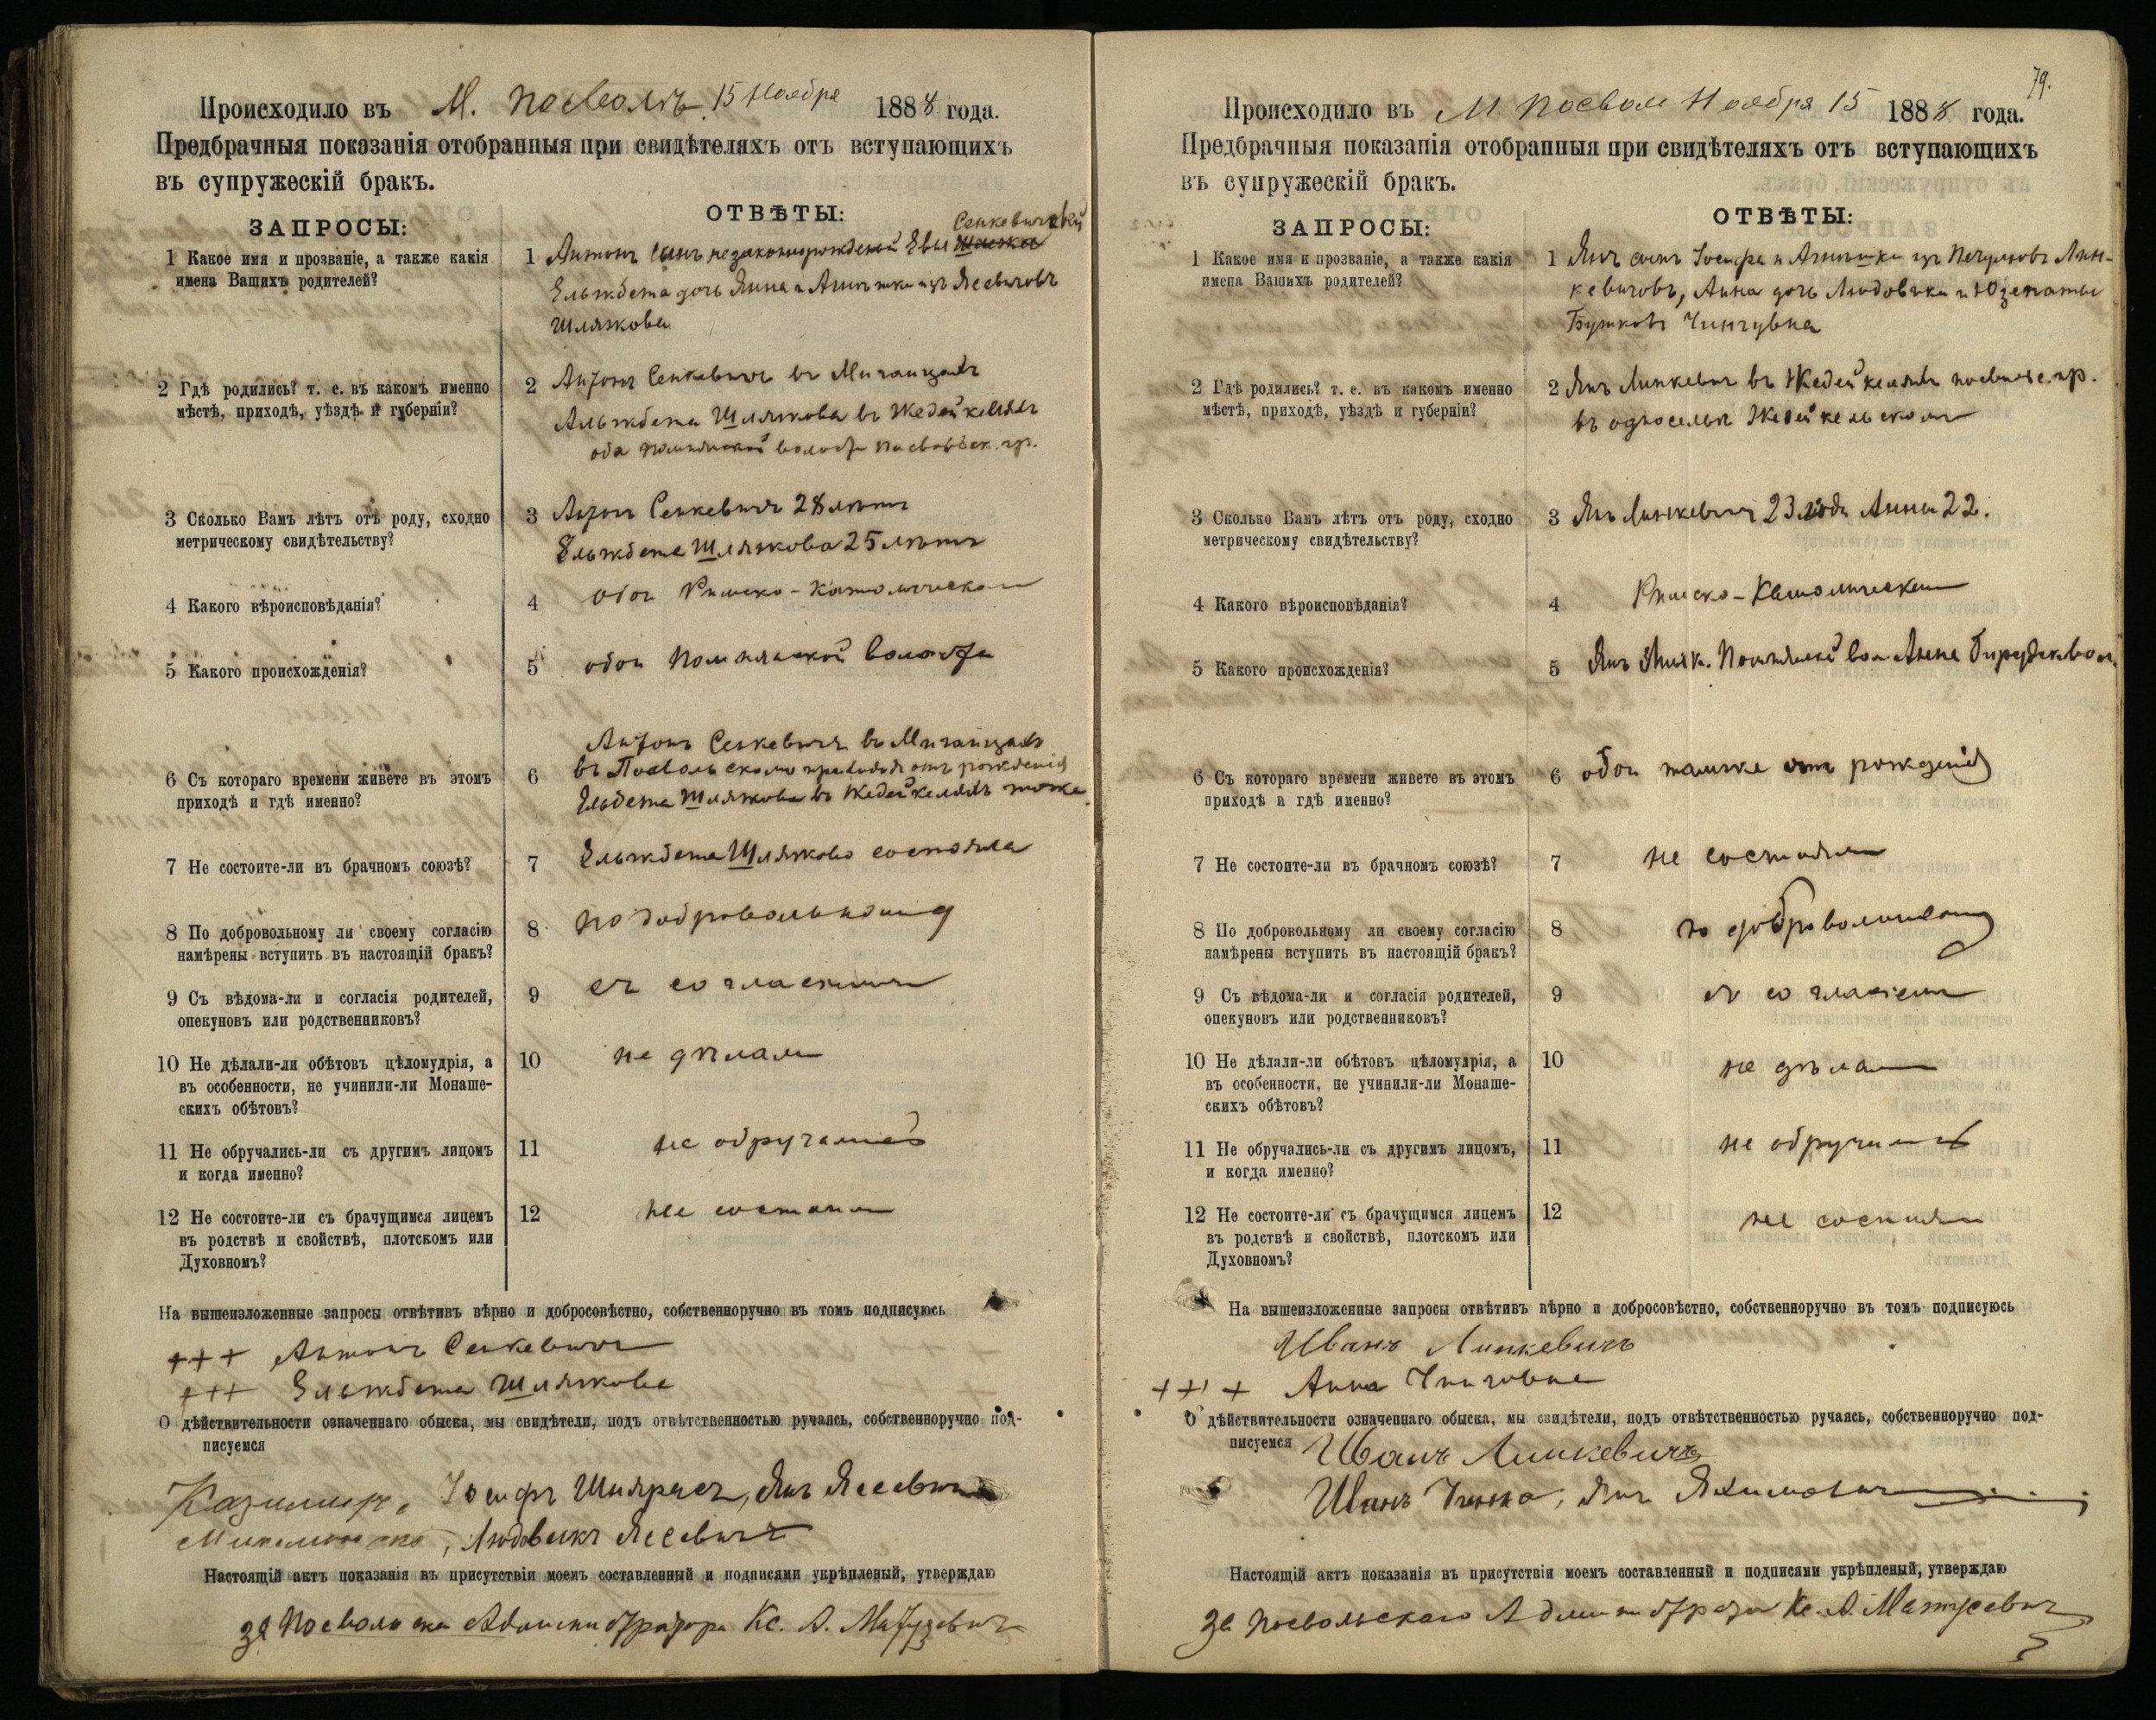 Происходило въ М. Посволѣ. 15 Ноября 1888 года.
Предбрачныя показанія отобранныя при свидѣтеляхъ отъ вступающихъ
въ супружескій бракъ.
ЗАПРОСЫ:
ОТВѢТЫ:
1 Какое имя и прозваніе, а также какія
имена Вашихъ родителей?
Сенкевичовой
1 Антонъ сынъ незаконнорожденой Евы
Ельжбета дочь Яна и Агнѣшки изъ Ясевичовъ
Шляжкова
2 Гдѣ родились? т. е. въ какомъ именно
мѣстѣ, приходѣ, уѣздѣ и губерніи?
2 Антонъ Сенкевичъ въ
Альжбета Шляжкова въ Жедейкеляхъ
оба волости Посвольск. пр.
3 Сколько Вамъ лѣтъ отъ роду, сходно
метрическому свидѣтельству?
3 Антонъ Сенкевичъ 28 лѣтъ
Ельжбета Шляжкова 25 лѣтъ
4 Какого вѣроисповѣданія?
4 обои Римско-Католическаго
5 Какого происхожденія?
5 обои волости
6 Съ котораго времени живете въ этомъ
приходѣ и гдѣ именно?
Антонъ Сенкевичъ въ
6 въ Посвольскомъ приходѣ отъ рожденія
Шляжкова въ Жедейкеляхъ тоже
7 Не состоите-ли въ брачномъ союзѣ?
7 Ельжбета Шляжкова состояла
8 По добровольному ли своему согласію
намѣрены вступить въ настоящій бракъ?
8 по добровольному
9 Съ вѣдома-ли и согласія родителей,
опекуновъ или родственниковъ?
9 съ согласіемъ
10 Не дѣлали-ли обѣтовъ цѣломудрія, а
въ особенности, не учинили-ли Монаше-
скихъ обѣтовъ?
10 не дѣлали
11 Не обручались-ли съ другимъ лицомъ
и когда именно?
11 не обручались
12 Не состоите-ли съ брачущимся лицемъ
въ родствѣ и свойствѣ, плотскомъ или
Духовномъ?
12 не состоимъ
На вышеизложенные запросы отвѣтивъ вѣрно и добросовѣстно, собственноручно въ томъ подписуюсь
+++ Антонъ Сенкевичъ
+++ Ельжбета Шляжкова
О дѣйствительности означеннаго обыска, мы свидѣтели, подъ отвѣтственностью ручаясь, собственноручно под-
писуемся
Казимиръ, Іосифъ Янъ Ясевичъ
, Людовикъ Ясевичъ
Настоящій актъ показанія въ присутствіи моемъ составленный и подписями укрѣпленый, утверждаю
за Администратора Кс. А. Матусевичъ
79.
Происходило въ М. Посволѣ Ноября 15 1888 года.
Предбрачныя показанія отобранныя при свидѣтеляхъ отъ вступающихъ
въ супружескій бракъ.
ЗАПРОСЫ:
ОТВѢТЫ:
1 Какое имя и прозваніе, а также какія
имена Вашихъ родителей?
1 Янъ сынъ Іосифа и Агнѣшки изъ Лин-
кевичовъ, Анна дочь Людовика и
2 Гдѣ родились? т. е. въ какомъ именно
мѣстѣ, приходѣ, уѣздѣ и губерніи?
2 Янъ Линкевичъ въ Жедейкеляхъ пр.
въ
3 Сколько Вамъ лѣтъ отъ роду, сходно
метрическому свидѣтельству?
3 Янъ Линкевичъ 23 года Анна 22.
4 Какого вѣроисповѣданія?
4 Римско-Католическаго
5 Какого происхожденія?
5 Янъ вол. Анна
6 Съ котораго времени живете въ этомъ
приходѣ и гдѣ именно?
6 обои также отъ рожденія
7 Не состоите-ли въ брачномъ союзѣ?
7 не состояли
8 По добровольному ли своему согласію
намѣрены вступить въ настоящій бракъ?
8 по добровольному
9 Съ вѣдома-ли и согласія родителей,
опекуновъ или родственниковъ?
9 съ согласіемъ
10 Не дѣлали-ли обѣтовъ цѣломудрія, а
въ особенности, не учинили-ли Монаше-
скихъ обѣтовъ?
10 не дѣлали
11 Не обручались-ли съ другимъ лицомъ,
и когда именно?
11 не обручались
12 Не состоите-ли съ брачущимся лицемъ
въ родствѣ и свойствѣ, плотскомъ или
Духовномъ?
12 не состояли
На вышеизложенные запросы отвѣтивъ вѣрно и добросовѣстно, собственноручно въ томъ подписуюсь
Иванъ Линкевичъ
+++ Анна
О дѣйствительности означеннаго обыска, мы свидѣтели, подъ отвѣтственностью ручаясь, собственноручно под-
писуемся Иванъ Линкевичъ
Иванъ Янъ Якимовичъ
Настоящій актъ показанія въ присутствіи моемъ составленный и подписями укрѣпленый, утверждаю
За Посвольскаго Администратора Кс. А. Матусевичъ